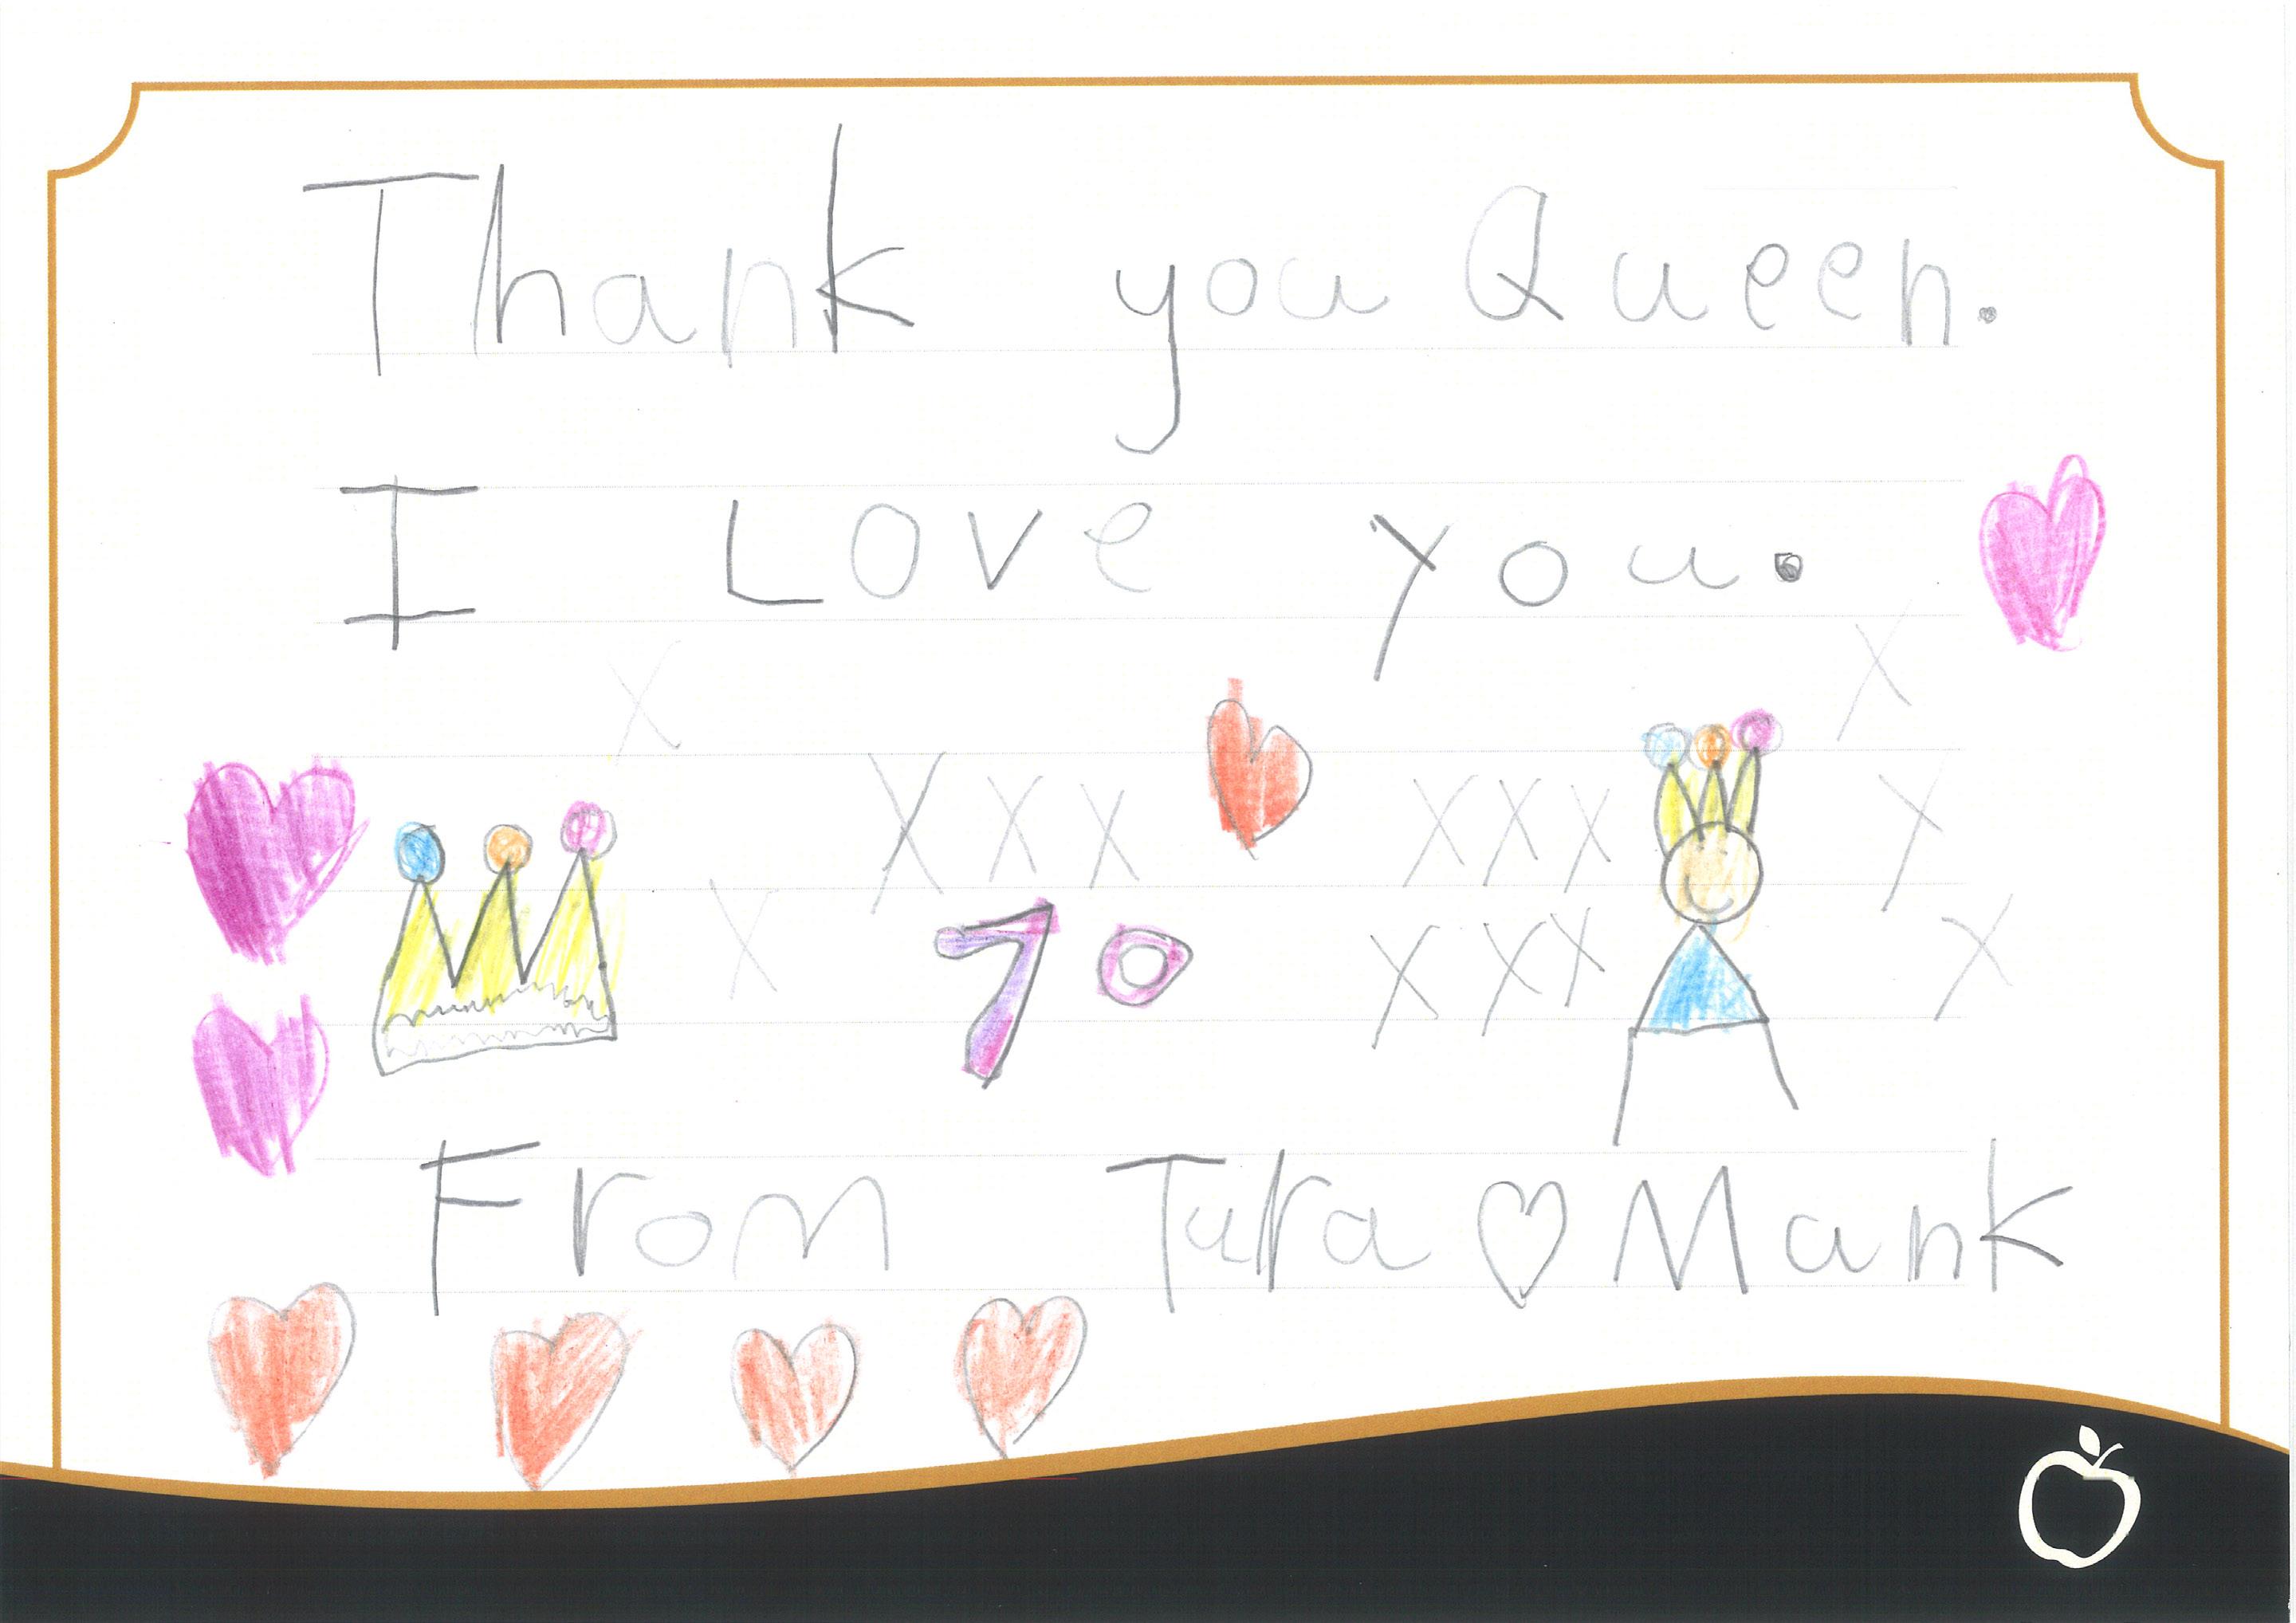 Thank you Queen.
I Love you.
X X
X X X X X X X
X 70 X X X X
From Tara ♡ Mank